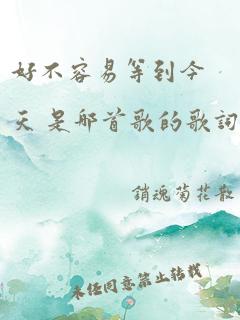 好不容易等到今
天 是那首歌的歌詞
銷魂菊花散
未经同意禁止转载